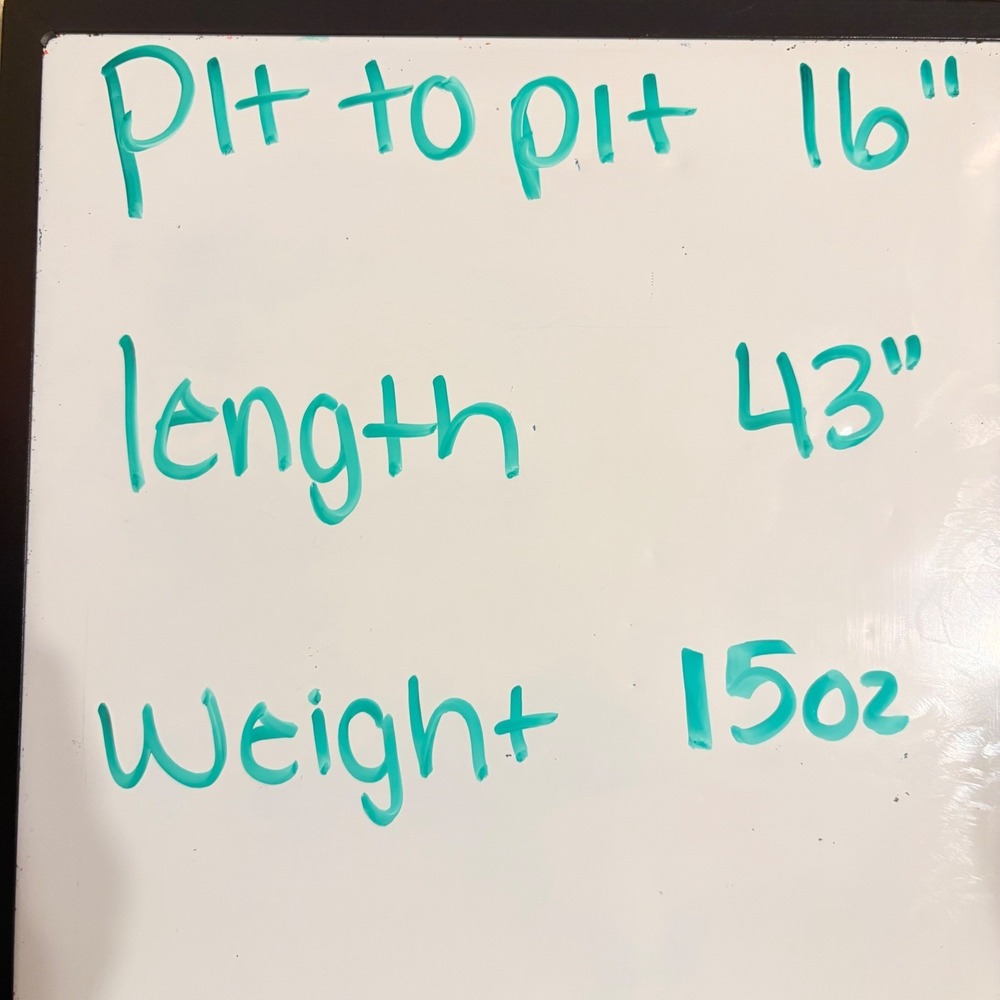 Pit to pit 16"
length 43"
weight 15oz